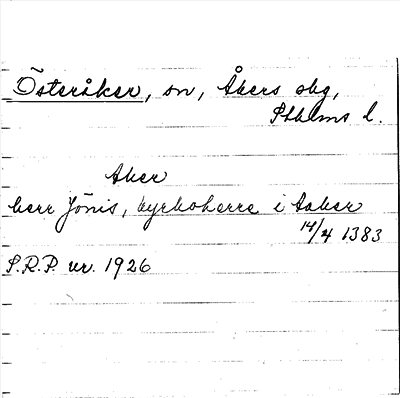 Österåker, sn, Åkers skg,
Sthlms l.
Aker
herr Jönis, kyrkoherre i Aaker
14/4 1383
S.R.P. nr. 1926